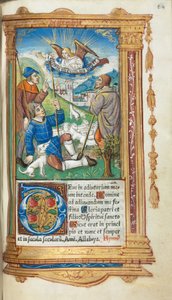 Deus in adiutorium me
um intende. Domine
ad adiuuandum me
festina. Gloria patri et
filio et spiritui sancto
Sicut erat in princi
pio et nunc et semper
et in secula seculorum. Amē. Alleluya.